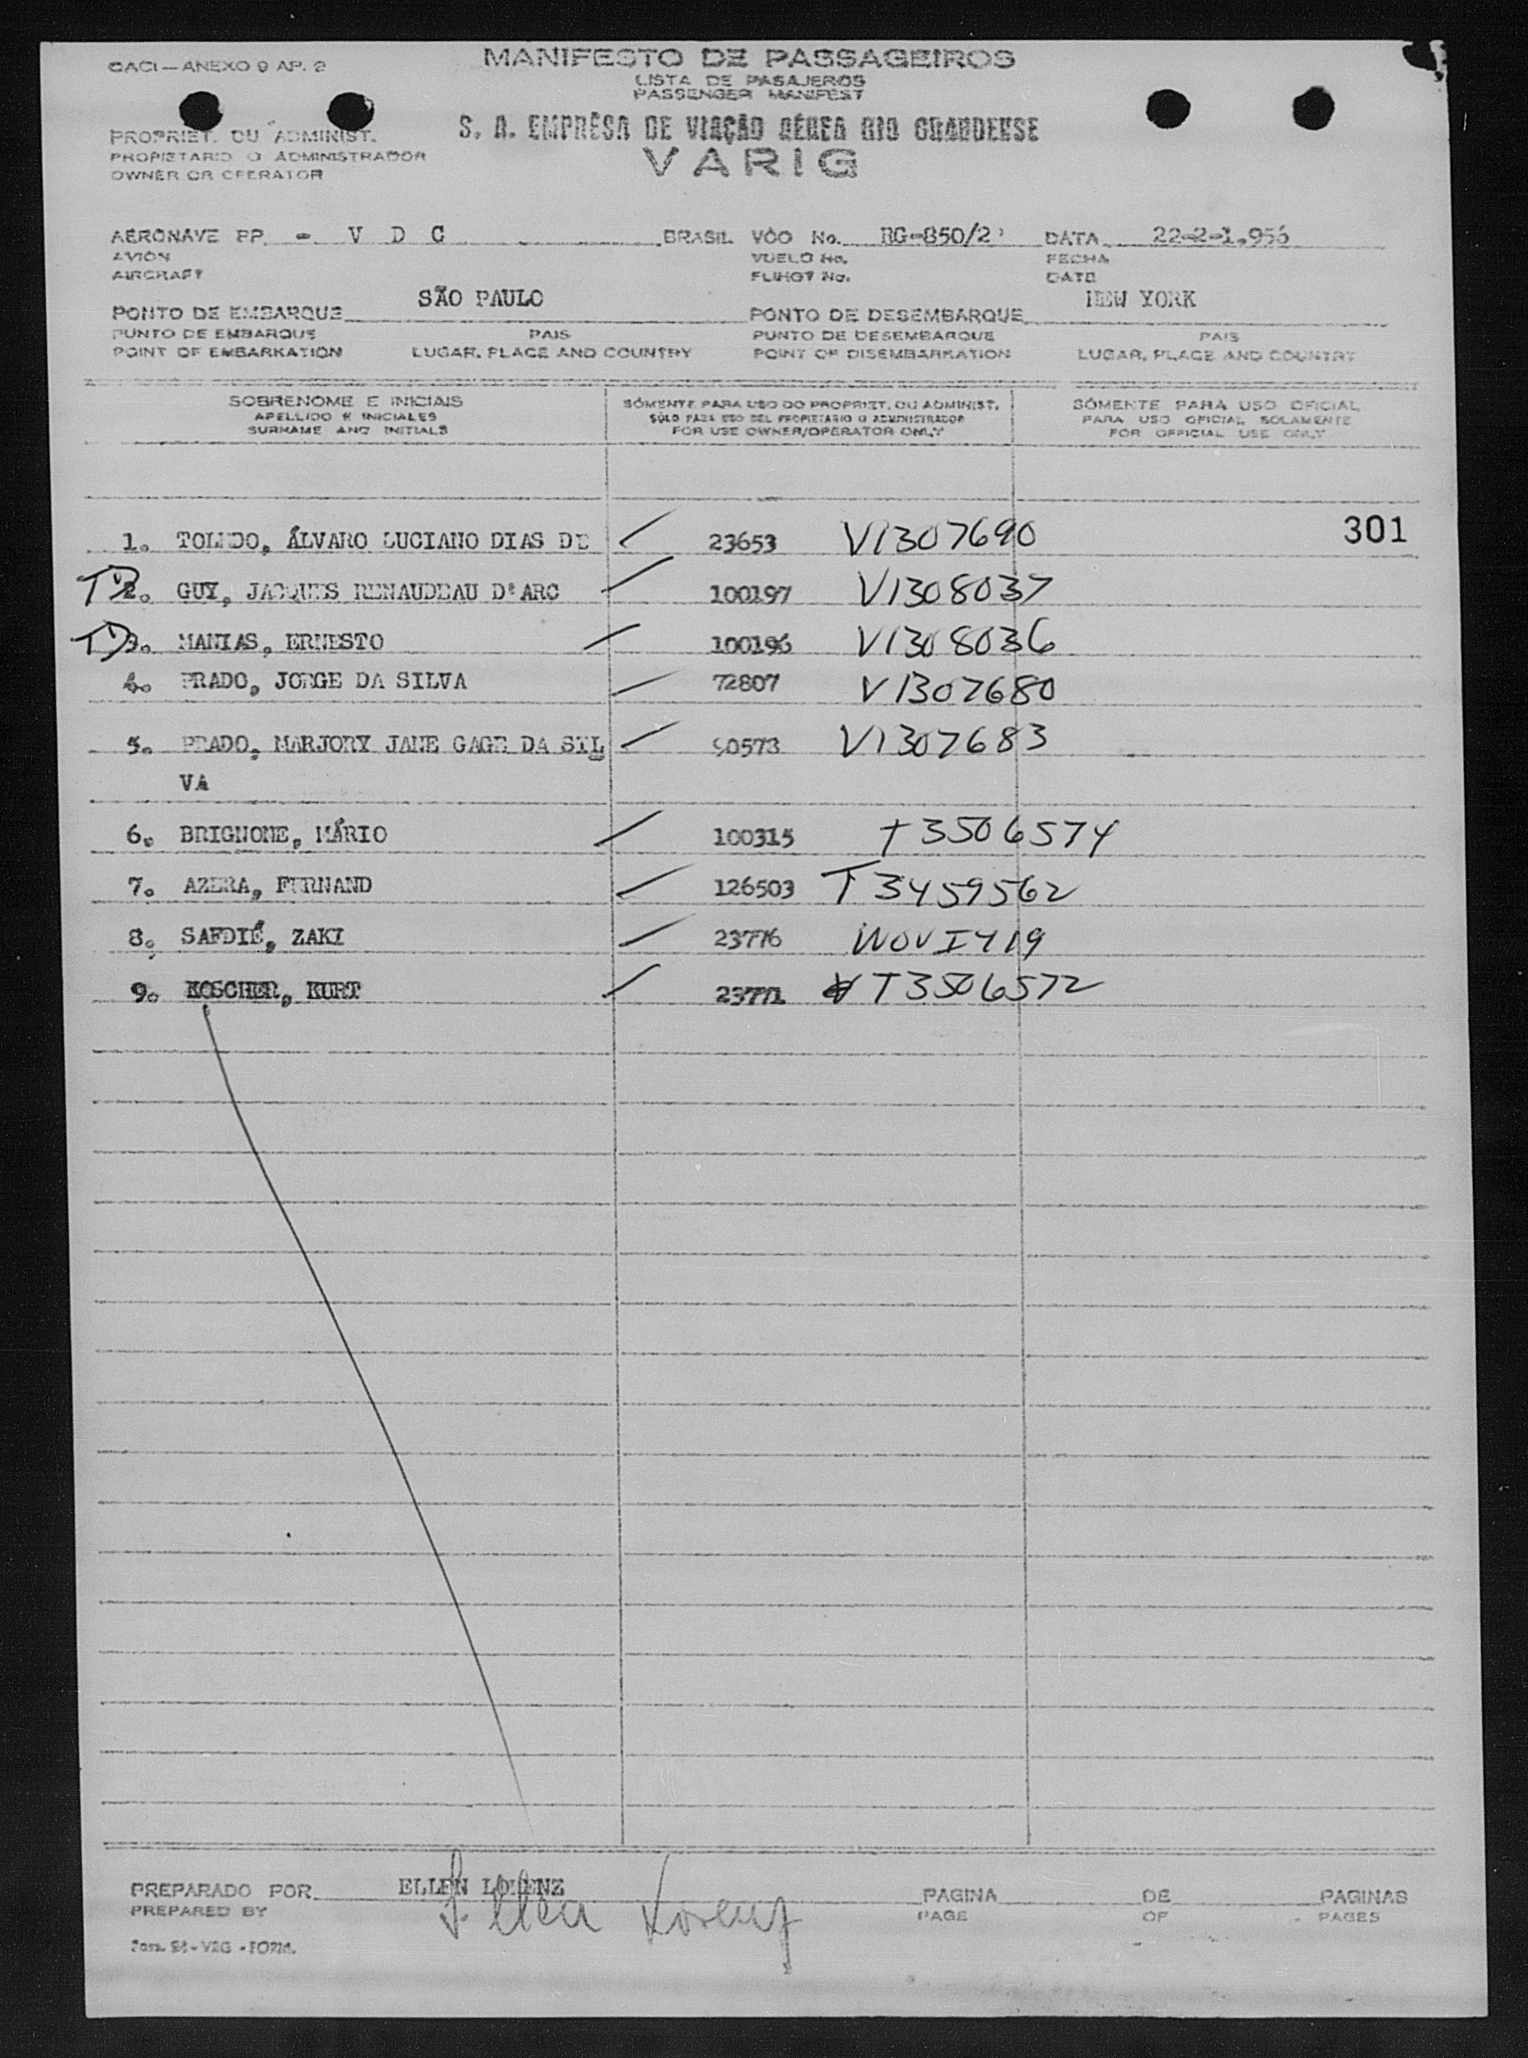 OACI — ANEXO 9 AP. 2
MANIFESTO DE PASSAGEIROS
LISTA DE PASAJEROS
PASSENGER MANIFEST
PROPRIET. OU ADMINIST.
PROPIETARIO O ADMINISTRADOR
OWNER OR OPERATOR
S. A. EMPRÊSA DE VIAÇÃO AÉREA RIO GRANDENSE
VARIG
AERONAVE PP - V D C BRASIL VÔO No. RG-850/2 DATA 22-2-1.956
AVION VUELO No. FECHA
AIRCRAFT FLIHGT No. DATE
PONTO DE EMBARQUE SÃO PAULO PONTO DE DESEMBARQUE NEW YORK
PUNTO DE EMBARQUE PAIS PUNTO DE DESEMBARQUE PAIS
POINT OF EMBARKATION LUGAR, PLACE AND COUNTRY POINT OF DISEMBARKATION LUGAR, PLACE AND COUNTRY
SOBRENOME E INICIAIS SÓMENTE PARA USO DO PROPRIET. OU ADMINIST. SÓMENTE PARA USO OFICIAL
APELLIDO E INICIALES SÓLO PARA USO DEL PROPIETARIO O ADMINISTRADOR PARA USO OFICIAL SOLAMENTE
SURNAME AND INITIALS FOR USE OWNER/OPERATOR ONLY FOR OFFICIAL USE ONLY
1. TOLEDO, ÁLVARO LUCIANO DIAS DE 23653 V1307690 301
2. GUY, JACQUES RENAUDEAU D'ARC 100197 V1308037
3. MANIAS, ERNESTO 100196 V1308036
4. PRADO, JORGE DA SILVA 72807 V1307680
5. PRADO, MARJORY JANE GAGE DA SIL 90573 V1307683
VA
6. BRIGNONE, MÁRIO 100315 T3506574
7. AZERA, FERNAND 126503 T3459562
8. SAFDIÉ, ZAKI 23776
9. KOSCHER, KURT 23771 T3506572
PREPARADO POR ELLEN LORENZ PAGINA DE PAGINAS
PREPARED BY Ellen Lorenz PAGE OF PAGES